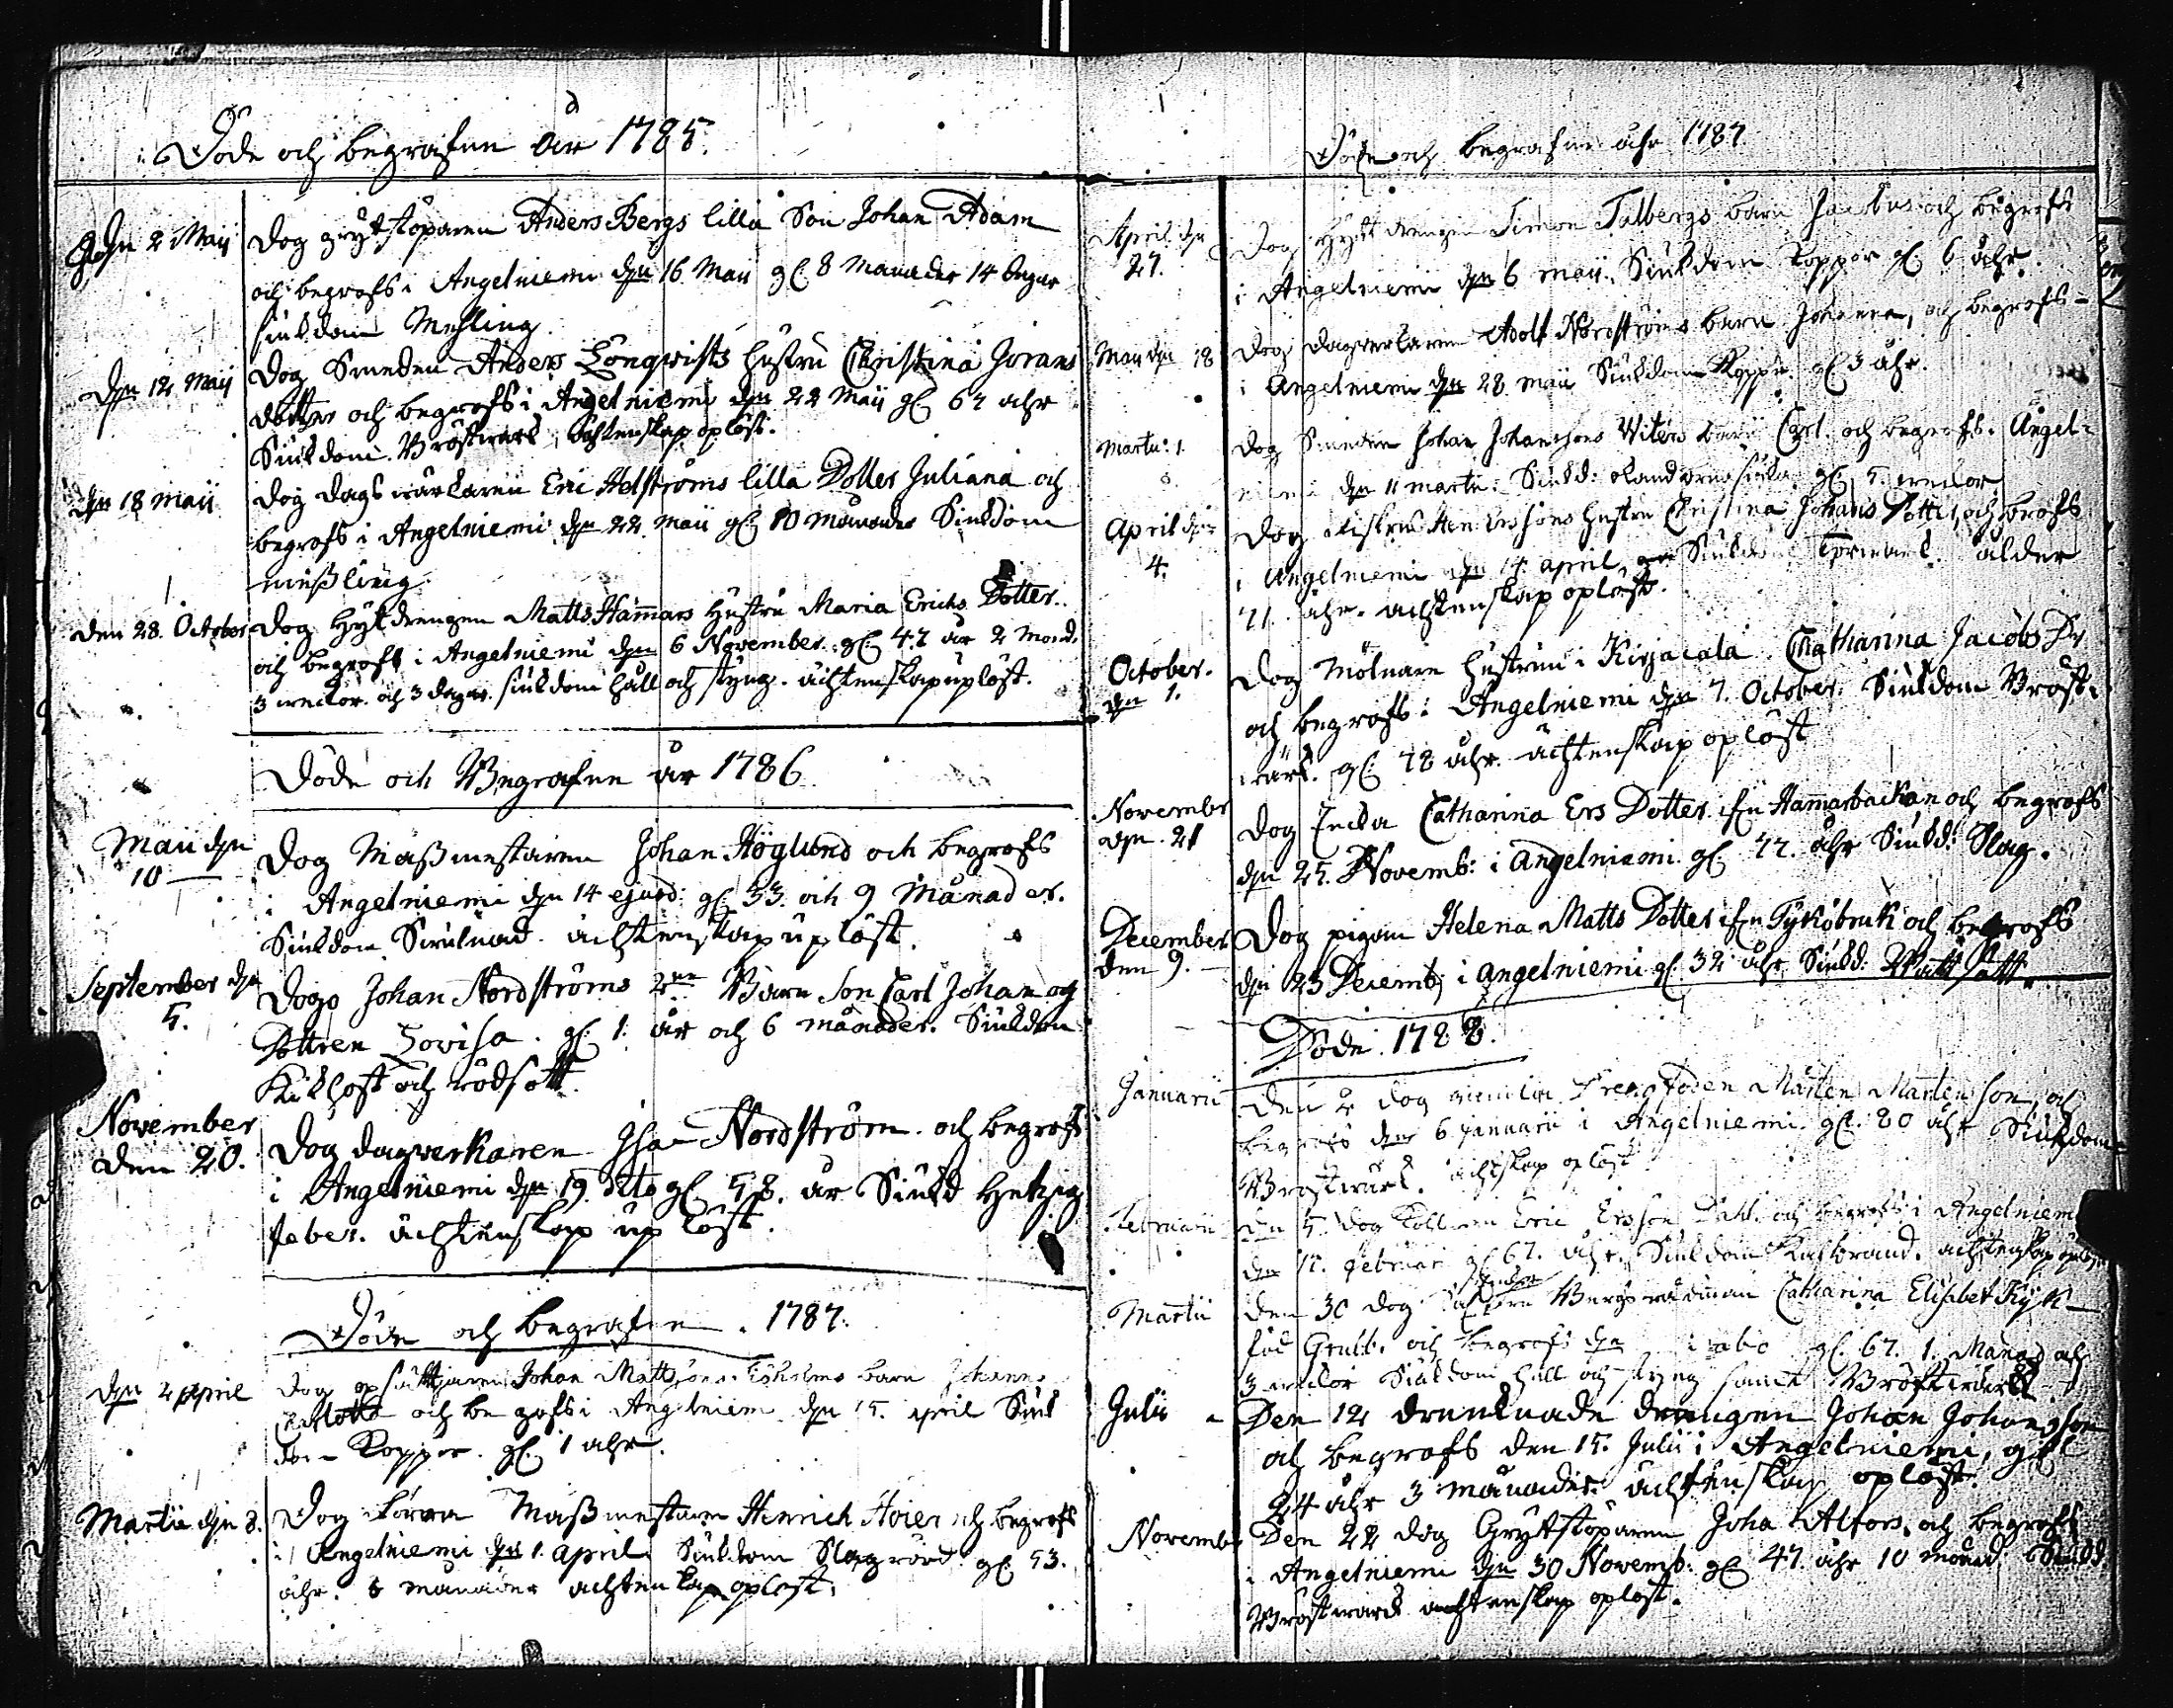 Döde och begrafne år 1785.
Den 2 Maij Dog grytstöparen Anders Bergs lilla Son Johan Adam
och begrofs i Angelniemi den 16 Maii gl. 8 Månader 14 dagar
siukdom Messling.
Den 12 Maij Dog Smeden Anders Lönqvists hustru Christina Jörans
dotter och begrofs i Angelniemi den 22 Maij gl. 67 åhr
Siukdom Bröstwärk, ächtenskap oplöst.
Den 18 Maii Dog dags wärkaren Eric Helströms lilla Dotter Juliana och
begrofs i Angelniemi den 22 Maii gl. 10 månader Siukdom
messling.
Den 28. October Dog Hyttdrengen Matts Hammars Hustru Maria Erichs Dotter
och begrofs i Angelniemi den 6 November gl. 47 år 2 Månd.
3 weckor och 3 dagar. siukdom håll och styng. ächtenskap uplöst.
Döde och Begrafne år 1786
Maii den Dog Massmestaren Johan Höglund och begrofs
10 i Angelniemi den 14 ejusd. gl. 33 och 9 Månader.
Siukdom ächtenskap uplöst.
September den Dogo Johan Nordströms 2ne Barn Son Carl Johan och
5. Dottren Lovisa. gl. 1 år och 6 månader. Siukdom
Kikhost och rödsott.
November Dog dagverkaren Nordström och begrofs
den 20. i Angelniemi den 19 dito gl. 58. år Siukd Hetzig
feber. ächtenskap uplöst.
Döde och begrafne 1787.
Den 2 April Dog Johan Mattsons barn Johanna
Charlotta och begrofs i Angelniemi den 15. april Siuk
dom Koppor. gl. 1 åhr.
Martii den 8. Dog förra Massmestaren Hinrich Höier och begrofs
i Angelniemi den 1. april Siukdom Slag gl. 53.
åhr. 6 månader ächtenskap oplöst.
Döde och begrafne åhr 1787
April den Dog Hyttdrengen Simon Talbergs barn och begrofs
27. i Angelniemi den 6 maij. Siukdom Koppor gl. 6 åhr.
Maii den 18 Dog dagverkaren Adolf Nordströms barn Johanna, och begrofs
i Angelniemi den 28 maii Siukdom Koppor gl. 3 åhr.
Martii: 1. Dog Smeden Johan Johanssons Witens barn Carl och begrofs i Angel-
niemi den 11 martii. Siukd: gl. 5. weckor
April den Dog hustru Christina Johans Dotter, och begrofs
4. i Angelniemi den 14 april, Siukd. ålder
71. åhr. ächtenskap oplöst.
October. Dog Mölnare hustrun i Kirjacala Chatharina Jacobs Dr
den 1. och begrofs i Angelniemi den 7. October. Siukdom Bröst-
wärk. gl. 78 åhr. ächtenskap oplöst
Novembr Dog Enckan Catharina Ers Dotter ifrån Hamarbackan och begrofs
den 21 den 25. Novemb: i Angelniemi gl. 77. åhr Siukd: Slag.
December Dog pigan Helena Matts Dotter ifrån Tyköbruk och begrofs
den 9. den 23 Decemb: i Angelniemi gl. 32 åhr Siukd.
Döde 1788.
Januarii Den 2 dog gamla Mårten Mårtenson, och
begrofs den 6 januarii i Angelniemi. gl. 80 åhr Siukdom
Bröstwärk. oplöst
Februarii den 5. dog Eric Ersson och begrofs i Angelniemi
den 17. februari gl. 67. åhr. Siukdom Kallbrand. ächtenskap
Martii den 30 dog Catharina Elisabet Kijk
föd Grubb. och begrofs den i Åbo gl. 67. 1. Månad och
3 weckor Siukdom håll och styng samt Bröstwärk
Julii Den 12 drunknade drengen Johan Johansson
och begrofs den 15. Julii i Angelniemi, gl
24 åhr 3 månader. ächtenskap oplöst.
Novemb: Den 22 dog Grytstöparen Joha Alfors, och begrofs
i Angelniemi den 30 Novemb: gl. 47. åhr 10 månad: Siukd.
Bröstwärk ächtenskap oplöst.